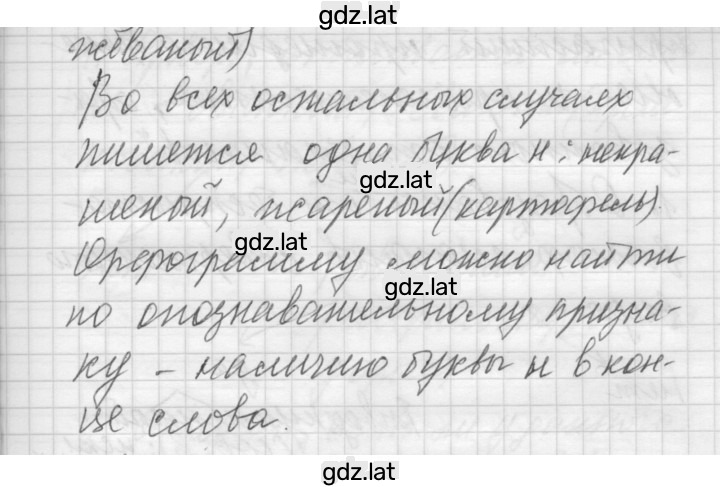 gdz.lat
жёваный)
Во всех остальных случаях
пишется одна буква н: некра-
gdz.lat
шеный, жареный (картофель).
gdz.lat
Орфограмму можно найти
gdz.lat
по опознавательному призна-
ку – наличию буквы н в кон-
це слова.
gdz.lat